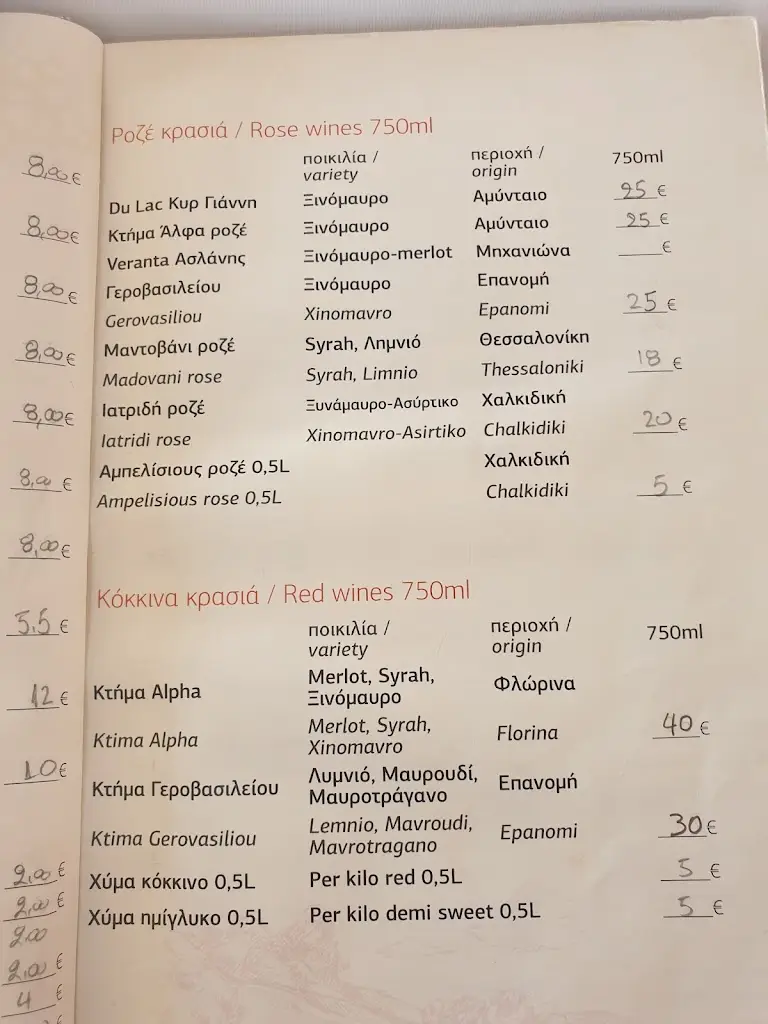 8,00€
8,00€
8,00€
8,00€
8,00€
8,00 €
8,00€
5.5 €
12 €
10€
2,00 €
2,00 €
2.00
2,00 €
4 €
Ροζέ κρασιά / Rose wines 750ml
ποικιλία / περιοχή / 750ml
variety origin
Du Lac Κυρ Γιάννη Ξινόμαυρο Αμύνταιο 25 €
Κτήμα Άλφα ροζέ Ξινόμαυρο Αμύνταιο 25 €
Veranta Ασλάνης Ξινόμαυρο-merlot Μηχανιώνα €
Γεροβασιλείου Ξινόμαυρο Επανομή
Gerovasiliou Xinomavro Epanomi 25 €
Μαντοβάνι ροζέ Syrah, Λημνιό Θεσσαλονίκη
Madovani rose Syrah, Limnio Thessaloniki 18 €
Ιατριδή ροζέ Ξυνάμαυρο-Ασύρτικο Χαλκιδική
Iatridi rose Xinomavro-Asirtiko Chalkidiki 20 €
Αμπελίσιους ροζέ 0,5L Χαλκιδική
Ampelisious rose 0,5L Chalkidiki 5 €
Κόκκινα κρασιά / Red wines 750ml
ποικιλία / περιοχή / 750ml
variety origin
Κτήμα Alpha Merlot, Syrah, Φλώρινα
Ξινόμαυρο
Ktima Alpha Merlot, Syrah, Florina 40 €
Xinomavro
Κτήμα Γεροβασιλείου Λυμνιό, Μαυρουδί, Επανομή
Μαυροτράγανο
Ktima Gerovasiliou Lemnio, Mavroudi, Epanomi 30 €
Mavrotragano
Χύμα κόκκινο 0,5L Per kilo red 0,5L 5 €
Χύμα ημίγλυκο 0,5L Per kilo demi sweet 0,5L 5 €